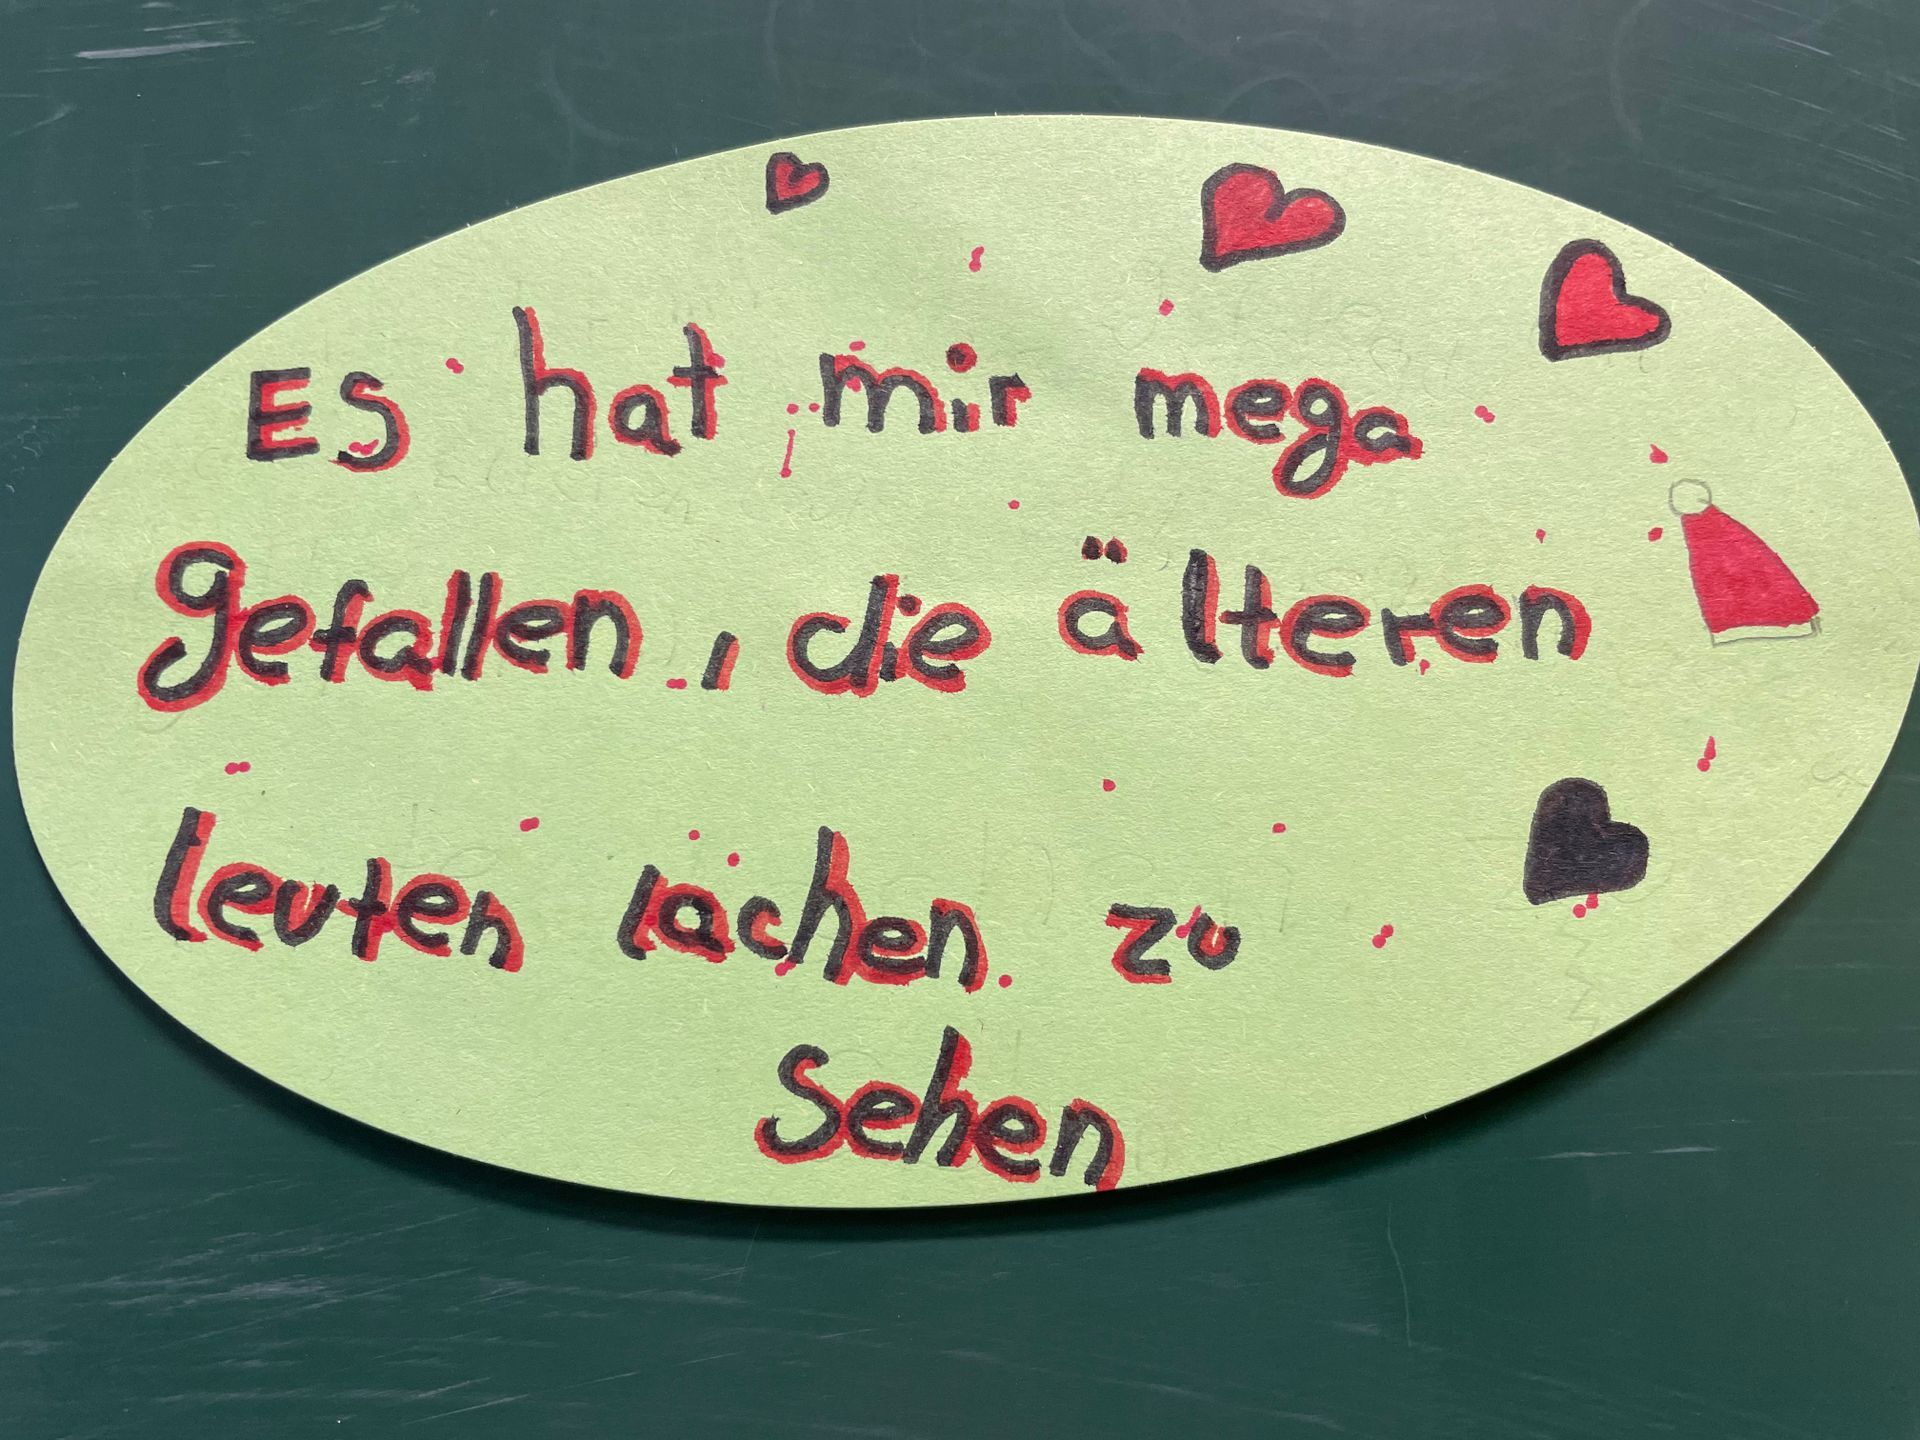 Es hat mir mega
gefallen, die älteren
leuten lachen zu
sehen